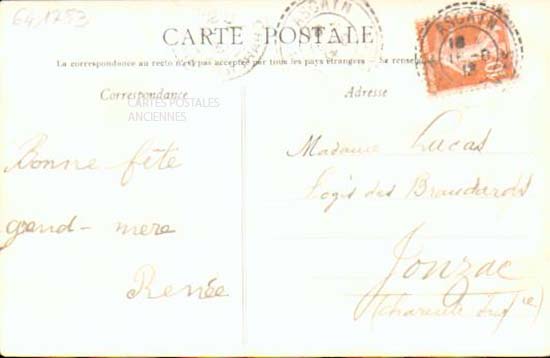 641253
ASCAIN
ASCAIN
CARTE POSTALE
La correspondance au recto n'est pas acceptée par tous les pays étrangers - Se rensei
Correspondance
Adresse
CARTES POSTALES
ANCIENNES
Bonne fête
grand-mère
Renée
Madame Lucas
Logis des
Jonzac
(Charente Infre)